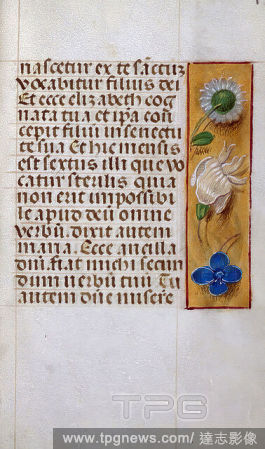 nascetur ex te sāctuz
vocabitur filius dei
Et ecce elizabeth cog
nata tua et ipa con
cepit filiū in senectu
te sua Et hic mensis
est sextus illi que vo
catur sterilis quia
non erit impossibi
le apud deū omne
verbū. dixit autem
maria. Ecce ancilla
dni. fiat michi secun
dum verbū tuū Tu
autem dne misere
TPG
www.tpgnews.com/ 達志影像